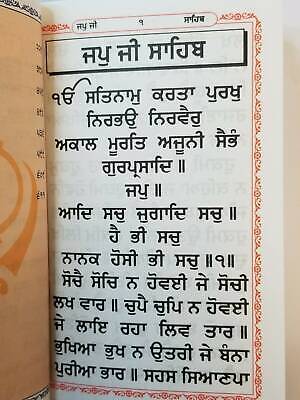 ਜਪੁ ਜੀ ੧ ਸਾਹਿਬ
ਜਪੁ ਜੀ ਸਾਹਿਬ
ੴ ਸਤਿਨਾਮੁ ਕਰਤਾ ਪੁਰਖੁ
ਨਿਰਭਉ ਨਿਰਵੈਰੁ
ਅਕਾਲ ਮੂਰਤਿ ਅਜੂਨੀ ਸੈਭੰ
ਗੁਰਪ੍ਰਸਾਦਿ ॥
ਜਪੁ ॥
ਆਦਿ ਸਚੁ ਜੁਗਾਦਿ ਸਚੁ ॥
ਹੈ ਭੀ ਸਚੁ
ਨਾਨਕ ਹੋਸੀ ਭੀ ਸਚੁ ॥੧॥
ਸੋਚੈ ਸੋਚਿ ਨ ਹੋਵਈ ਜੇ ਸੋਚੀ
ਲਖ ਵਾਰ ॥ ਚੁਪੈ ਚੁਪਿ ਨ ਹੋਵਈ
ਜੇ ਲਾਇ ਰਹਾ ਲਿਵ ਤਾਰ ॥
ਭੁਖਿਆ ਭੁਖ ਨ ਉਤਰੀ ਜੇ ਬੰਨਾ
ਪੁਰੀਆ ਭਾਰ ॥ ਸਹਸ ਸਿਆਣਪਾ